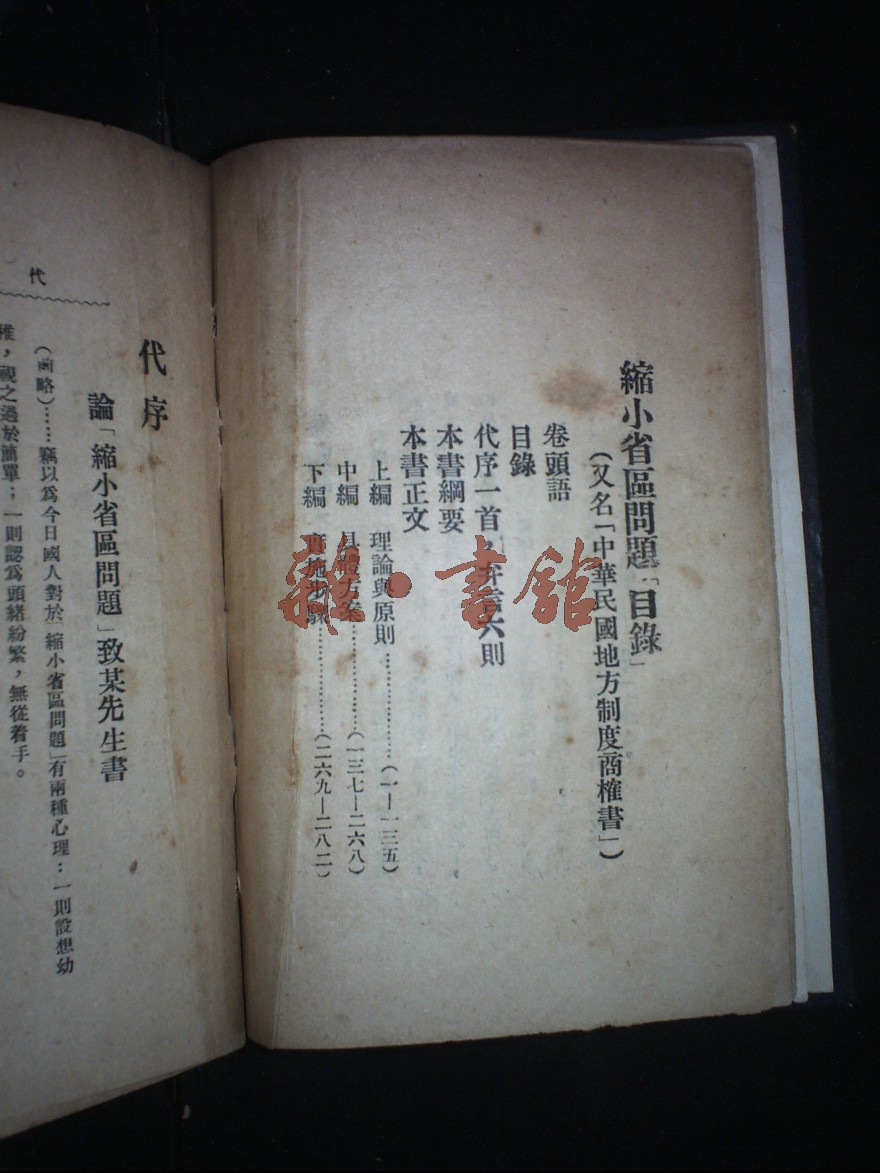 縮小省區問題「目錄」
（又名「中華民國地方制度商榷書」）
卷頭語
目錄
代序一首，弁言六則
本書綱要
本書正文
上編　理論與原則…………………（一—一三五）
中編　具體方案…………………（一三七—二六八）
下編　實施步驟…………………（二六九—二八二）
雜·書館
代
代序
論「縮小省區問題」致某先生書
（前略）……竊以爲今日國人對於「縮小省區問題」有兩種心理：一則設想幼
稚，視之過於簡單；一則認爲頭緒紛繁，無從着手。